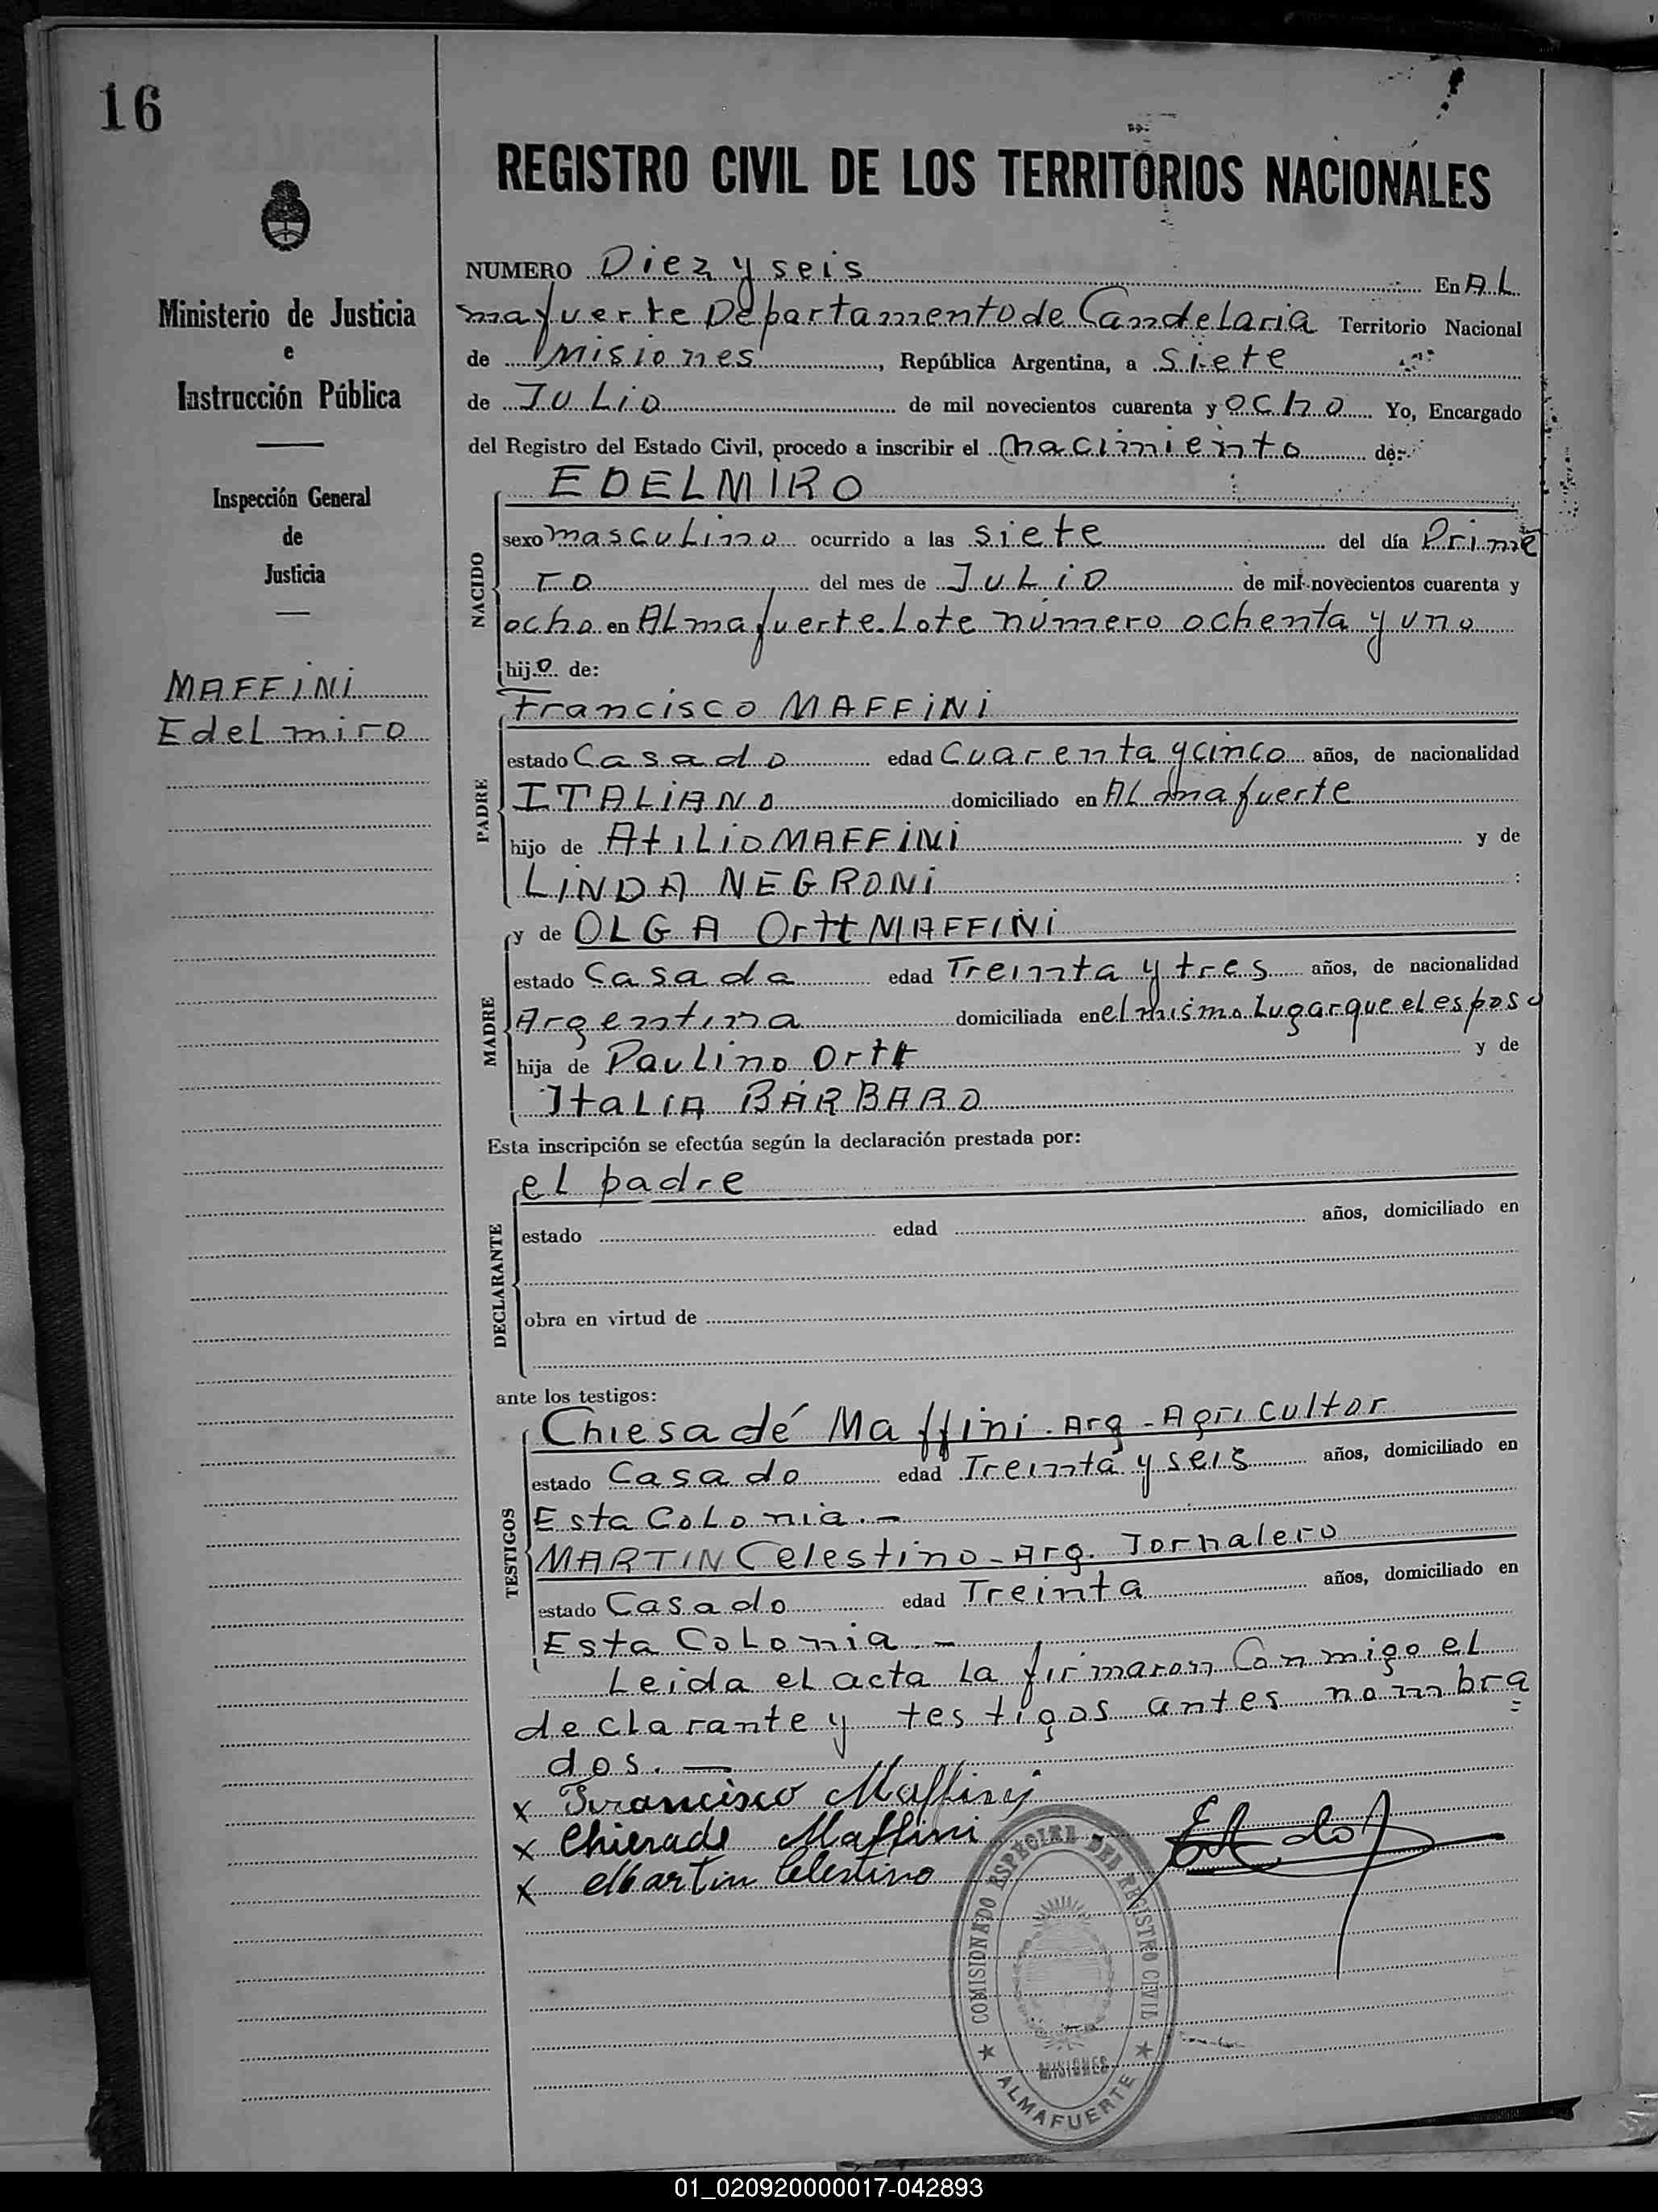 16
REGISTRO CIVIL DE LOS TERRITORIOS NACIONALES
Ministerio de Justicia
e
Instrucción Pública
Inspección General
de
Justicia
MAFFINI
Edelmiro
NUMERO Diez y seis En AL
mafuerte Departamento de Candelaria Territorio Nacional
de Misiones, República Argentina, a siete
de Julio de mil novecientos cuarenta y ocho Yo, Encargado
del Registro del Estado Civil, procedo a inscribir el nacimiento de:
NACIDO
EDELMIRO
sexo masculino ocurrido a las siete del día Prime
ro del mes de Julio de mil novecientos cuarenta y
ocho en Almafuerte. Lote número ochenta y uno
hijo de:
PADRE
Francisco MAFFINI
estado Casado edad Cuarenta y cinco años, de nacionalidad
ITALIANO domiciliado en Almafuerte
hijo de Atilio MAFFINI y de
LINDA NEGRONI
MADRE
y de OLGA Ortt MAFFINI
estado Casada edad Treinta y tres años, de nacionalidad
Argentina domiciliada en el mismo Lugar que el esposo
hija de Paulino Ortt y de
Italia BÁRBARO
Esta inscripción se efectúa según la declaración prestada por:
DECLARANTE
el padre
estado edad años, domiciliado en
obra en virtud de
ante los testigos:
TESTIGOS
Chiesa dé Maffini. Arg - Agricultor
estado Casado edad Treinta y seis años, domiciliado en
Esta Colonia. -
MARTIN Celestino - Arg. Jornalero
estado Casado edad Treinta años, domiciliado en
Esta Colonia. -
Leida el acta la firmaron Conmigo el
declarante y testigos antes nombra=
dos. —
x Francisco Maffini
x Chierade Maffini
x Martin Celestino
COMISIONADO ESPECIAL DEL REGISTRO CIVIL
MISIONES
★ ALMAFUERTE ★
01_020920000017-042893